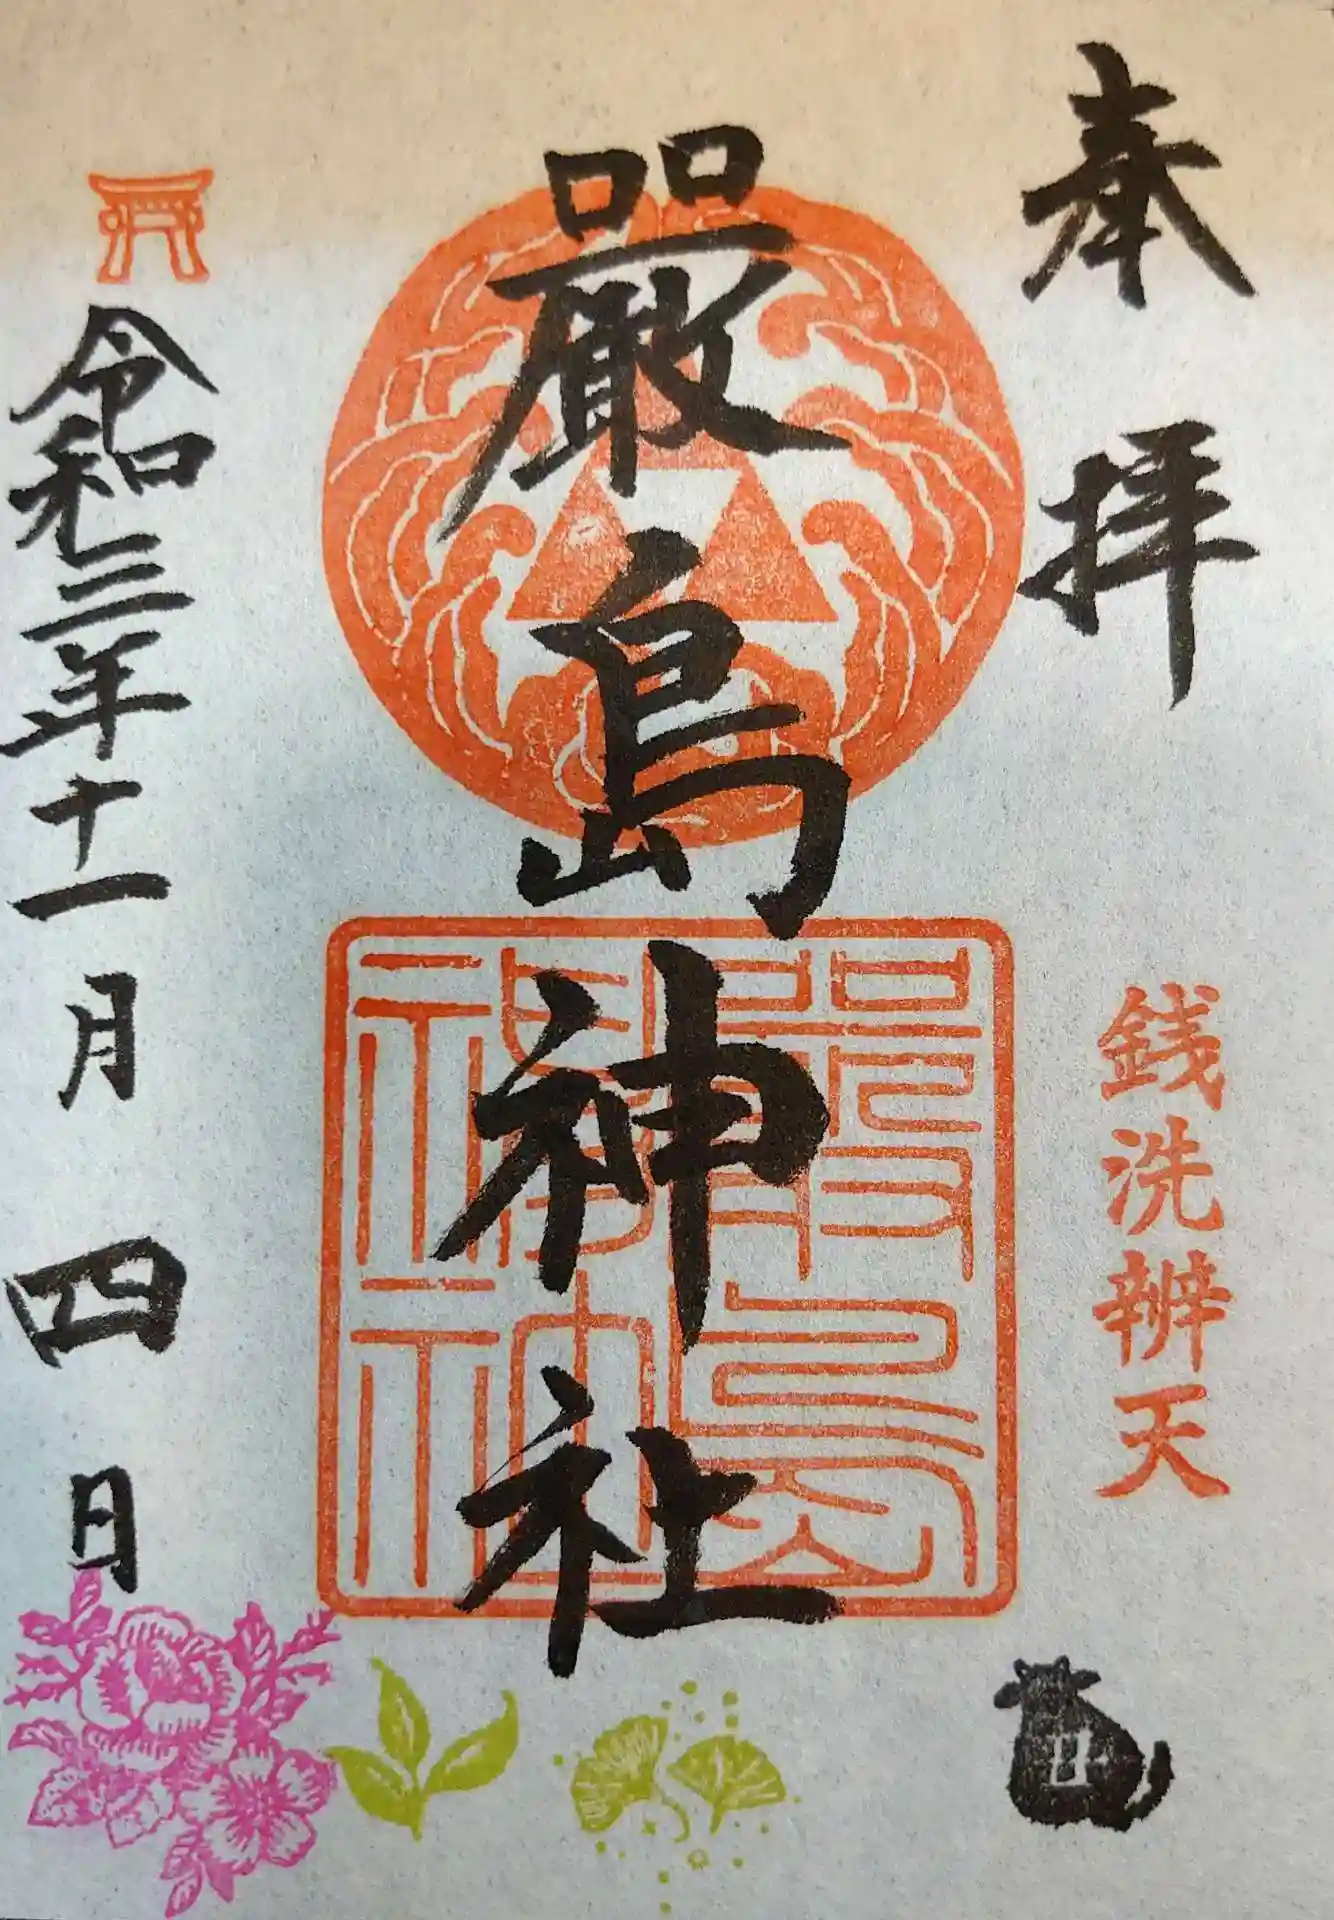 奉拝
銭洗辨天
嚴島神社
嚴島神社
令和三年十一月四日
丑